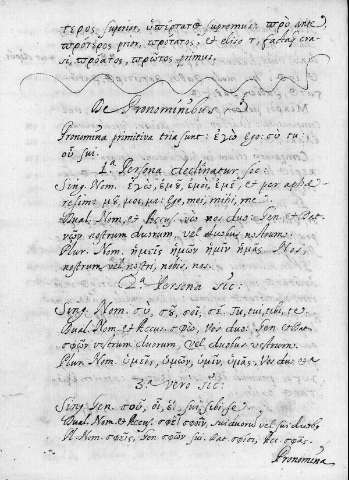 τερος superior, ὑπέρτατος supremus. πρὸ ante
πρότερος prior, πρότατος, et eliso τ, factaq́ cra-
si, πρόατος, πρῶτος primus.
De Pronominibus
Pronomina primitiva tria sunt: ἐγὼ ego: σὺ tu:
οὗ sui.
1ª Persona declinatur sic:
Sing. Nom. ἐγὼ, ἐμοῦ, ἐμοὶ, ἐμὲ, et per aphæ-
resim μοῦ, μοι, με: Ego, mei, mihi, me
Dual. Nom. et Accus. νῶι nos duo: Gen. et Dat.
νῶϊν nostrum duorum, vel duobus nostrum.
Plur. Nom. ἡμεῖς ἡμῶν ἡμῖν ἡμᾶς Nos,
nostrum vel nostri, nobis, nos.
2ª Persona sic:
Sing. Nom. σὺ, σοῦ, σοὶ, σέ. Tu, tui, tibi, te
Dual. Nom. et Accus. σφῶϊ, Vos duo: Gen et Dat
σφῶϊν vestrum duorum, vel duobus vestrum.
Plur. Nom. ὑμεῖς, ὑμῶν, ὑμῖν, ὑμᾶς, Vos
3ª vero sic:
Sing. Gen. οὗ, οἷ, ἓ, sui, sibi, se.
Dual. Nom. et Accus σφωὲ σφωῒν, sui duorum vel sui
Pl. Nom. σφεῖς, Gen σφῶν sui. Dat σφίσι, Acc σφᾶς.
Pronomina